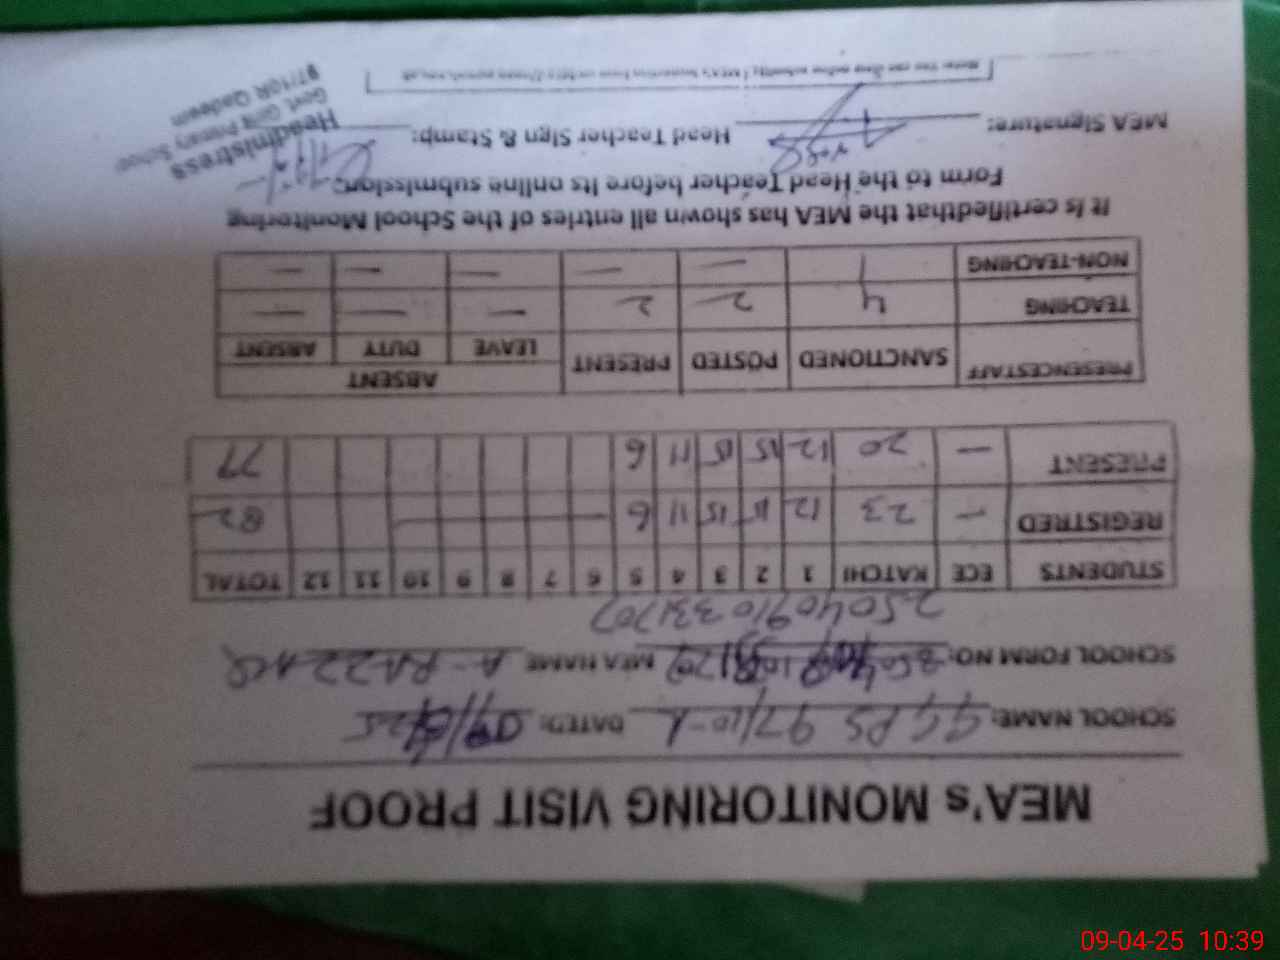 MEA's MONITORING VISIT PROOF
SCHOOL NAME: GGPS 97/10-R DATED: 09/4/25
SCHOOL FORM NO: MEA NAME A-RAZZAQ
25040910331707
STUDENTS ECE KATCHI 1 2 3 4 5 6 7 8 9 10 11 12 TOTAL
REGISTRED — 23 12 15 15 11 6 82
PRESENT — 20 12 15 11 6 77
PRESENCESTAFF SANCTIONED POSTED PRESENT ABSENT
LEAVE DUTY ABSENT
TEACHING 4 2 2 — — —
NON-TEACHING 1 — — — — —
It is certifiedthat the MEA has shown all entries of the School Monitoring
Form to the Head Teacher before its online submission.
MEA Signature: Head Teacher Sign & Stamp:
Headmistress
Govt. Girls Primary School
97/10R Qadeem
09-04-25 10:39